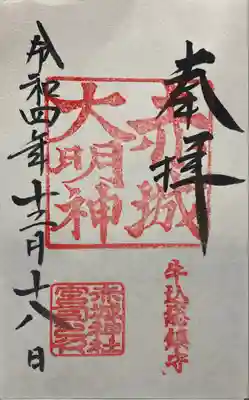 奉拝
赤城
大明神
牛込総鎮守
赤城神社
令和四年十二月十八日